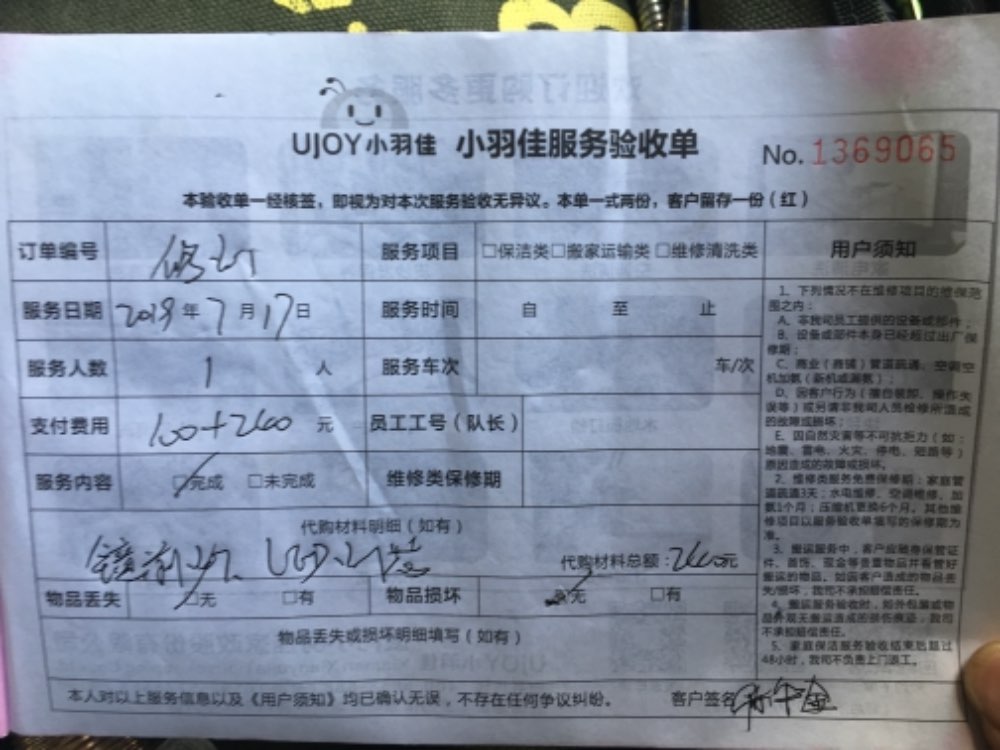 UJOY小羽佳 小羽佳服务验收单 No. 1369065
本验收单一经核签，即视为对本次服务验收无异议。本单一式两份，客户留存一份（红）
订单编号 修灯 服务项目 □保洁类□搬家运输类 □维修清洗类
服务日期 2018年7月17日 服务时间 自 至 止
服务人数 1 人 服务车次 车/次
支付费用 100+240 元 员工工号（队长）
服务内容 □完成 □未完成 维修类保修期
代购材料明细（如有）
镜前灯、LED灯
代购材料总额：240元
物品丢失 □无 □有 物品损坏 □无 □有
物品丢失或损坏明细填写（如有）
本人对以上服务信息以及《用户须知》均已确认无误，不存在任何争议纠纷。 客户签名
用户须知
1、下列情况不在维修项目的维保范
围之内：
A、非我司员工提供的设备或部件；
B、设备或部件本身已经超过出厂保
修期；
C、商业（商铺）管道疏通、空调空
机加氨（新机或漏氨）；
D、因客户行为（擅自装卸、操作失
误等）或另请非我司人员检修所造成
的故障或损坏；
E、因自然灾害等不可抗拒力（如：
地震、雷电、火灾、停电、短路等）
原因造成的故障或损坏。
2、维修类服务免费保修期：家庭管
道疏通3天；水电维修、空调维修、加
氨1个月；压缩机更换6个月。其他维
修项目以服务验收单填写的保修期为
准。
3、搬运服务中，客户应随身保管证
件、首饰、现金等贵重物品并看管好
搬运的物品。如因客户造成的物品丢
失/损坏，我司不承担赔偿责任。
4、搬运服务验收时，如外包装或物
品外观无搬运造成的损伤痕迹，我司
不承担赔偿责任。
5、家庭保洁服务验收结束后超过
48小时，我司不负责上门返工。